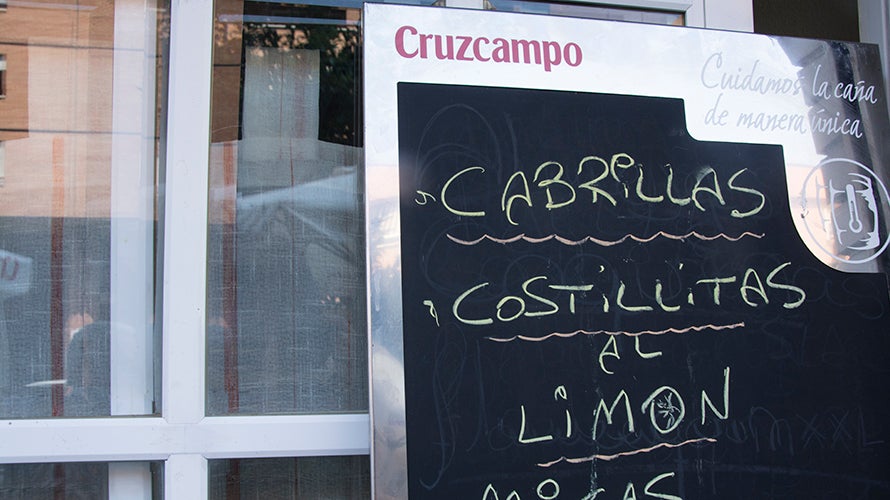 Cruzcampo
Cuidamos la caña
de manera única
CABRILLAS
COSTILLITAS
AL
LIMON
MIGAS